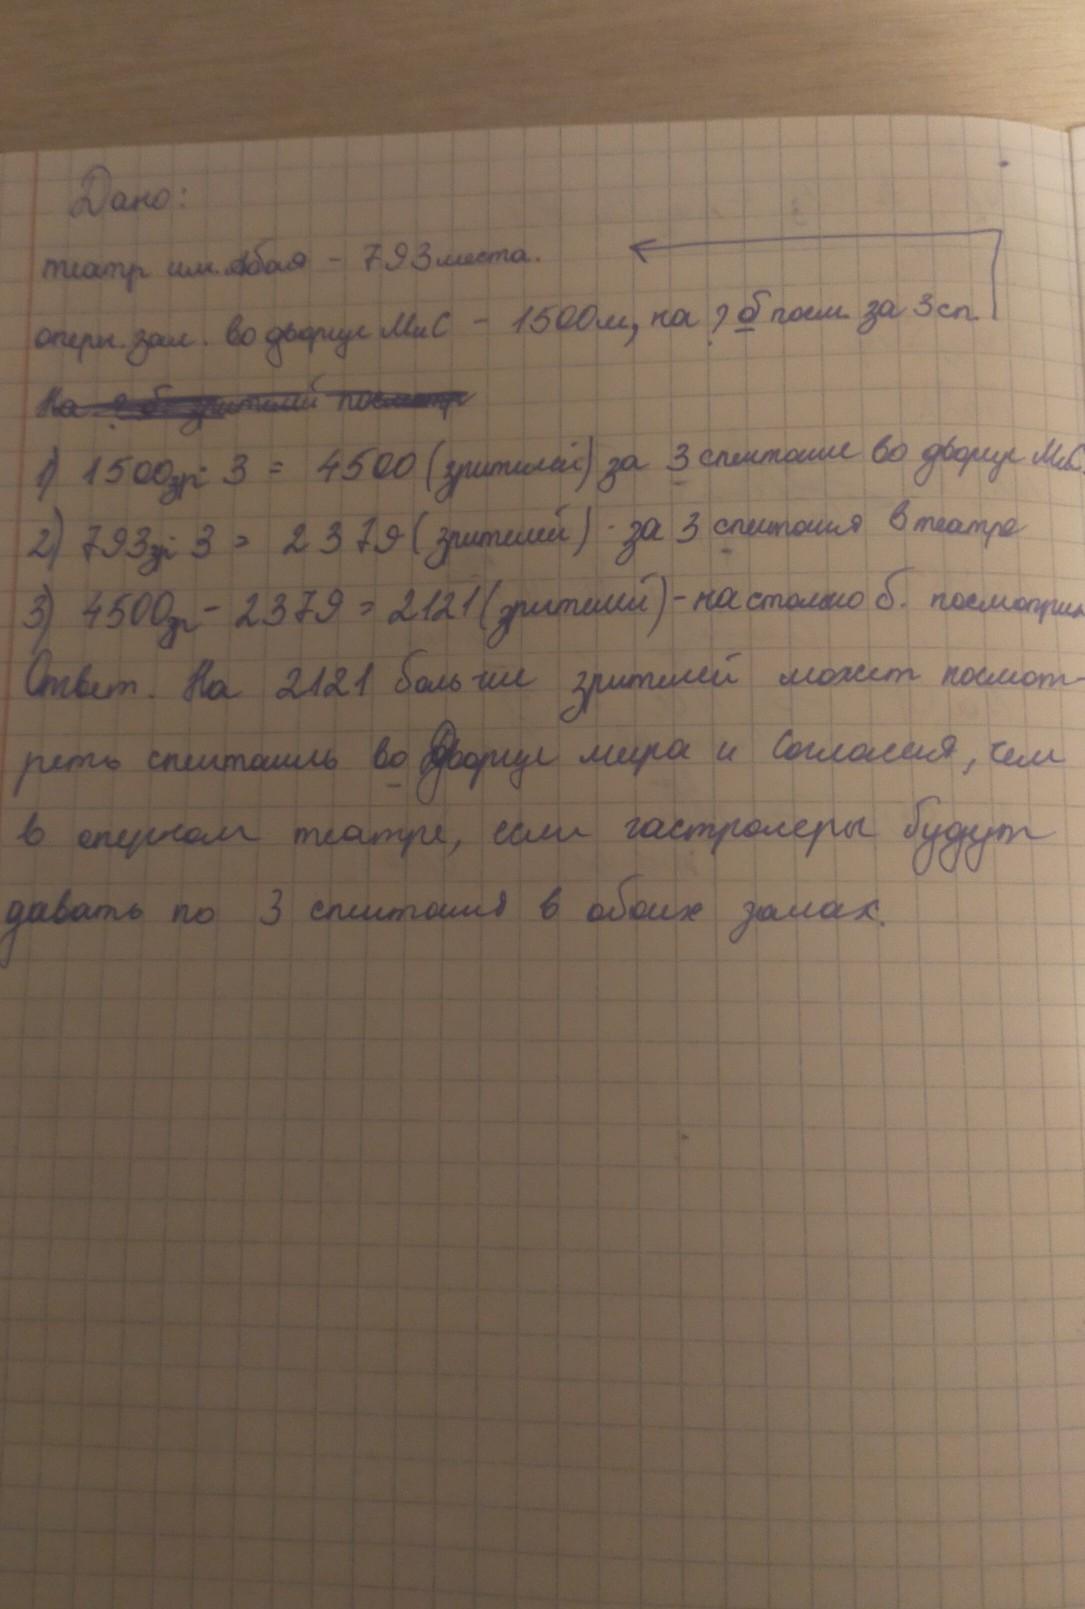 Дано:
театр им. Абая - 793 места.
оперн. зал. во дворце МиС - 1500 м, на ? б посм. за 3 сп.
На ? б. зрителей посмотр
1) 1500 зр · 3 = 4500 (зрителей) за 3 спектакле во дворце МиС.
2) 793 зр · 3 = 2379 (зрителей) - за 3 спектакля в театре
3) 4500 зр - 2379 = 2121 (зрителей) - настолько б. посмотрит
Ответ. На 2121 больше зрителей может посмот-
реть спектакль во Дворце мира и Согласия, чем
в оперном театре, если гастролеры будут
давать по 3 спектакля в обоих залах.